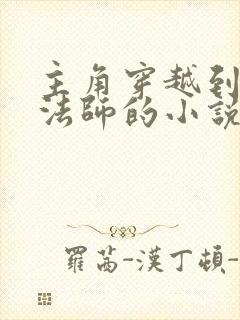 主角穿越到
法師的小說
羅茜-漢丁頓-